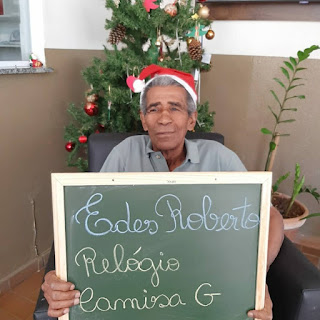 Edes Roberto
Relógio
Camisa G